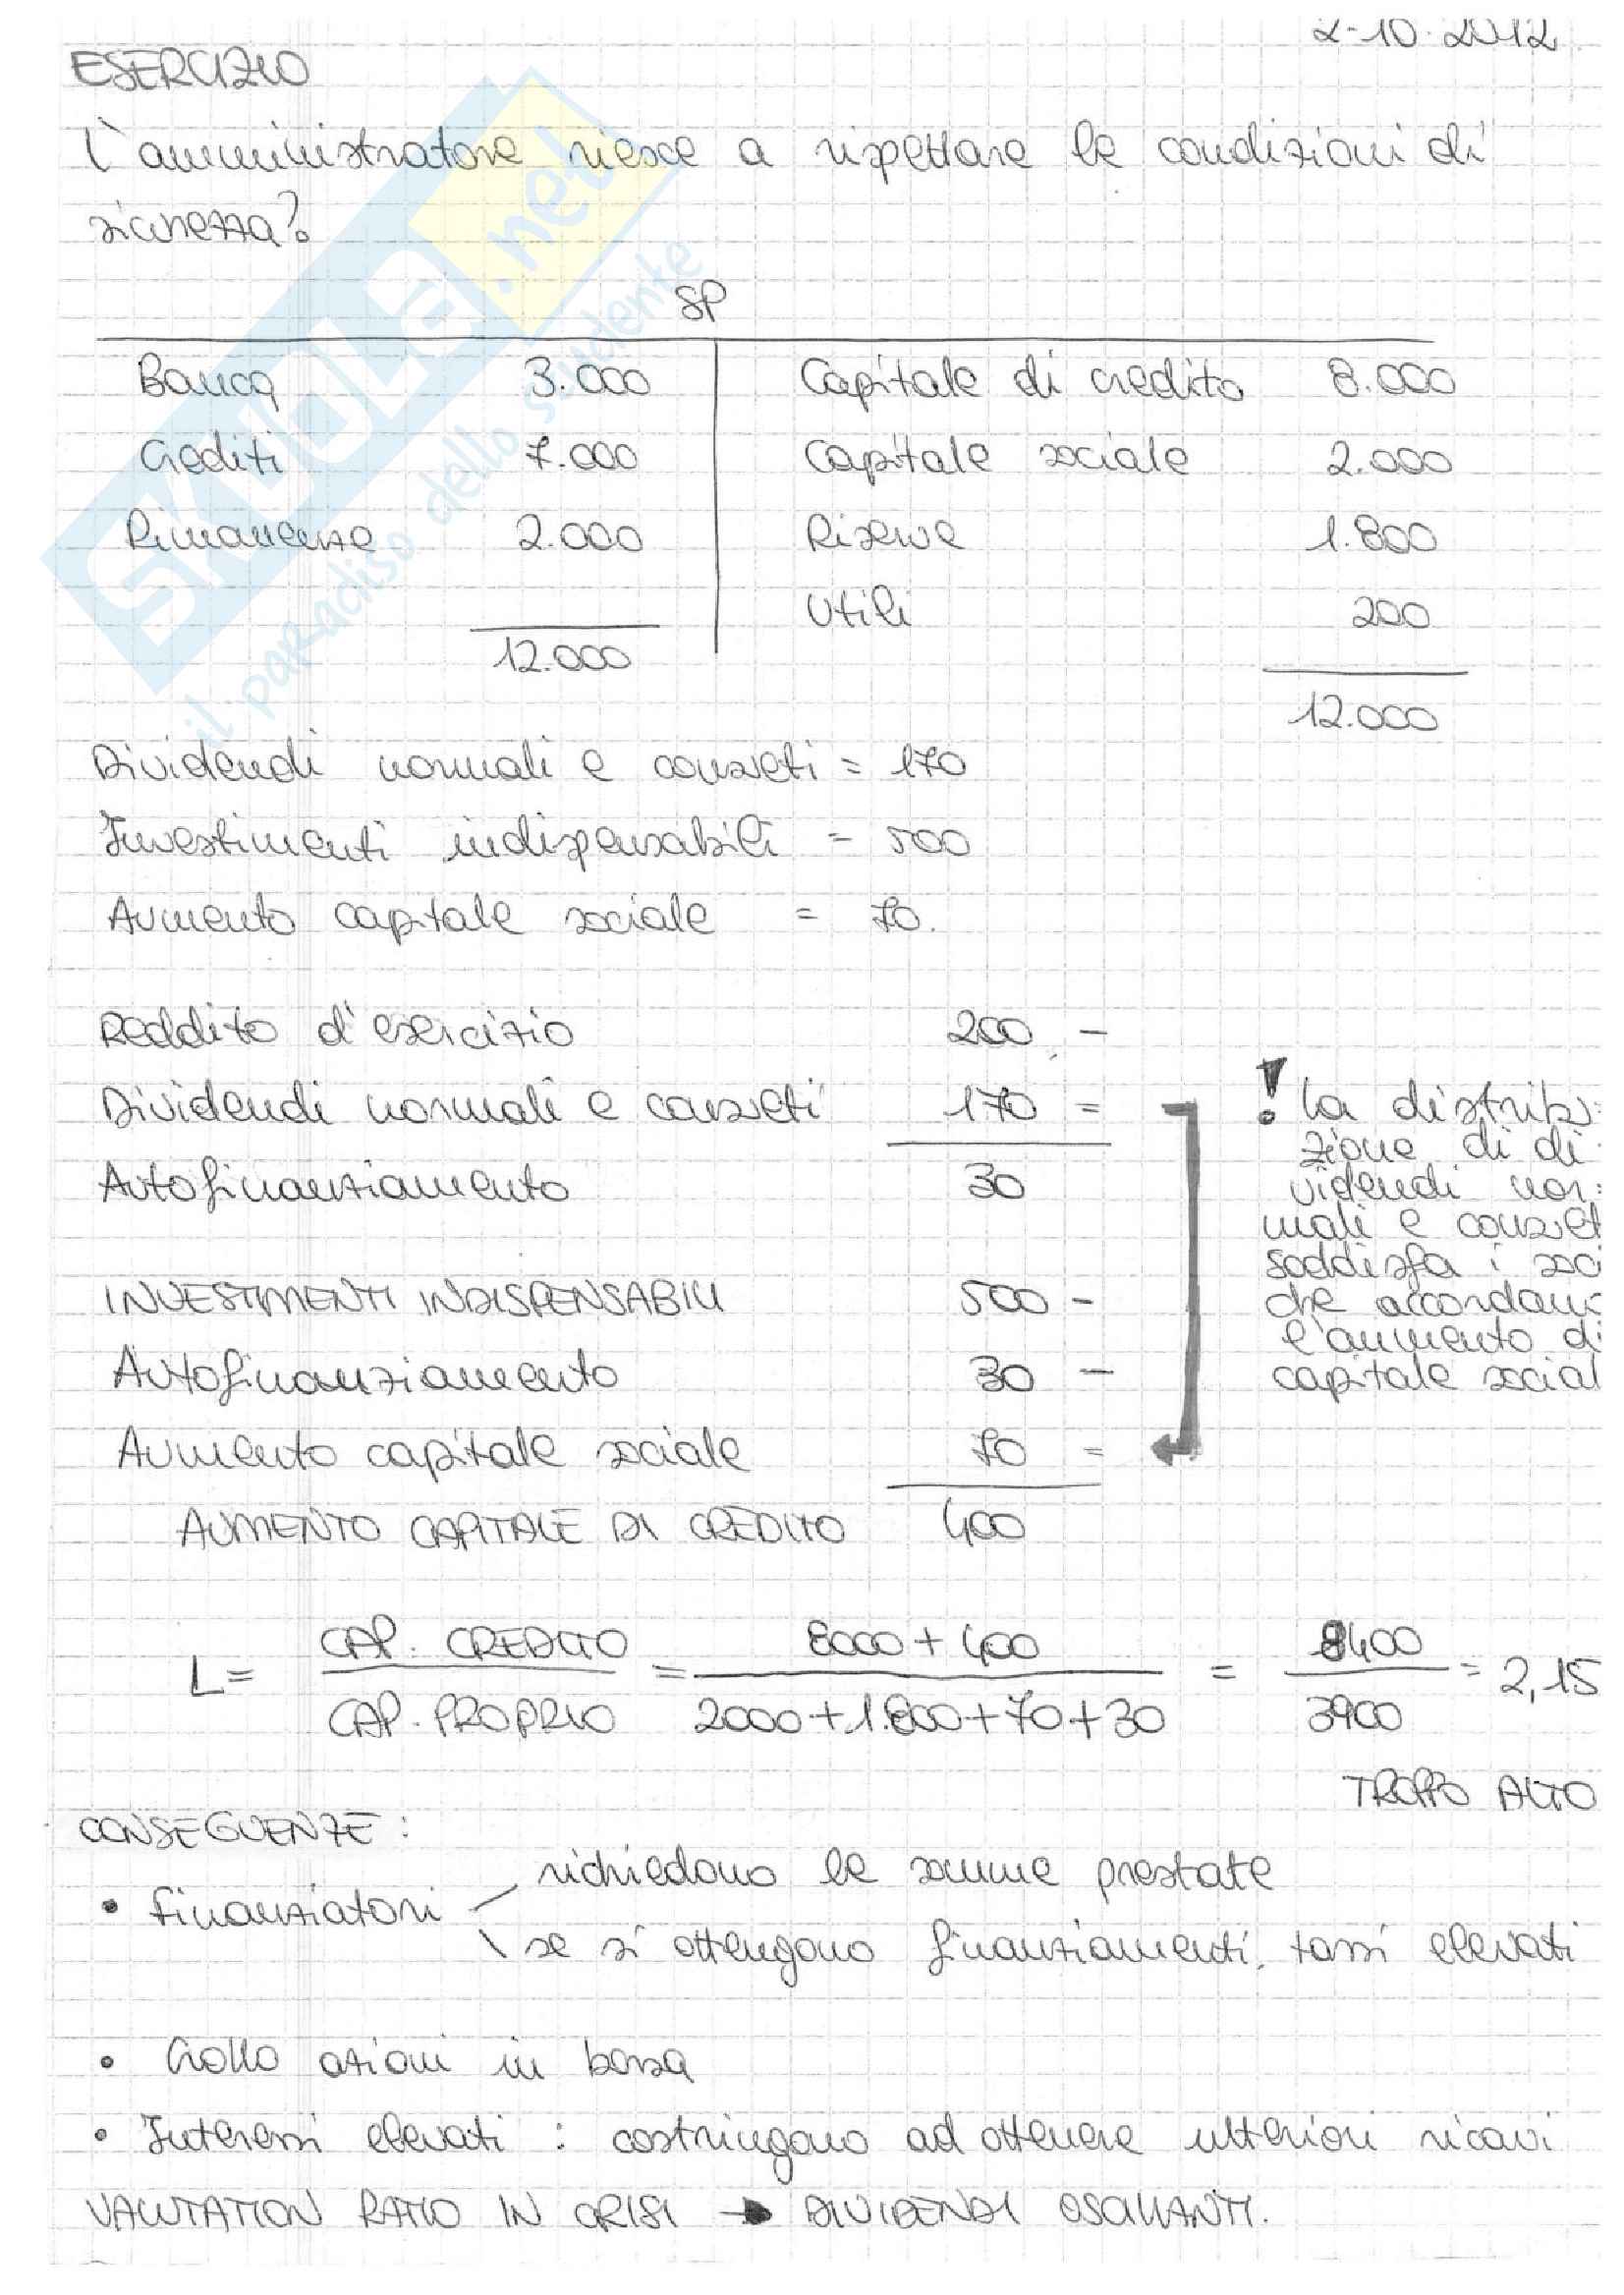 2-10-2012
ESERCIZIO
L'amministratore riesce a rispettare le condizioni di
sicurezza?
SP
Banca 3.000 Capitale di credito 8.000
Crediti 7.000 Capitale sociale 2.000
Rimanenze 2.000 Riserve 1.800
Utili 200
12.000
12.000
Dividendi normali e consueti = 170
Investimenti indispensabili = 500
Aumento capitale sociale = 70.
Reddito d'esercizio 200 -
Dividendi normali e consueti 170 =
Autofinanziamento 30
! La distribu=
zione di di
videndi nor=
mali e consuet
soddisfa i soci
che accordano
l'aumento di
capitale social
INVESTIMENTI INDISPENSABILI 500 -
Autofinanziamento 30 -
Aumento capitale sociale 70 =
AUMENTO CAPITALE DI CREDITO 400
L = CAP. CREDITO / CAP. PROPRIO = 8000 + 400 / 2000 + 1.800 + 70 + 30 = 8400 / 3900 = 2,15
TROPPO ALTO
CONSEGUENZE :
• finanziatori
richiedono le somme prestate
se si ottengono finanziamenti, tassi elevati
• Crollo azioni in borsa
• Interessi elevati : costringono ad ottenere ulteriori ricavi
VALUTATION RATIO IN CRISI → DIVIDENDI OSCILLANTI.
SKUOLA.net
il paradiso dello studente